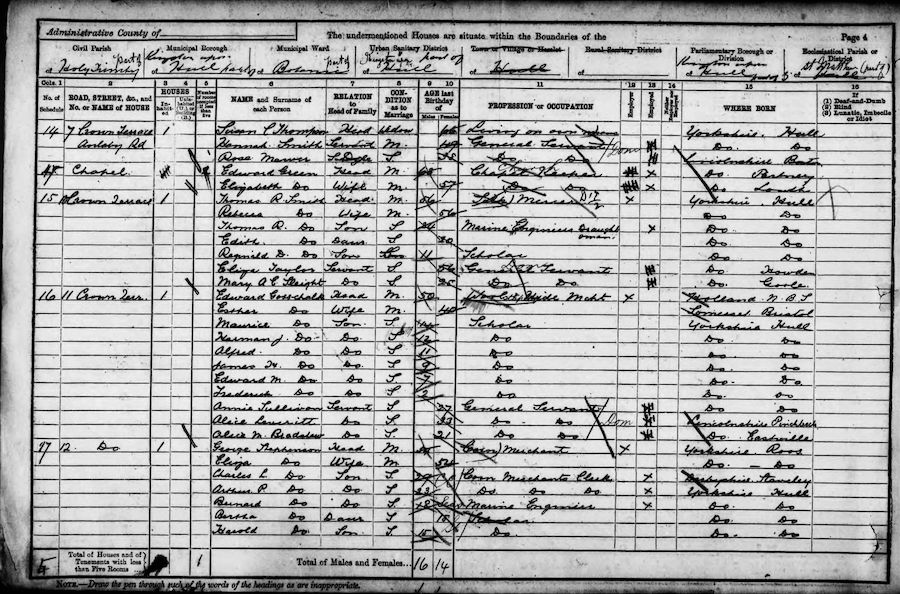 Administrative County of
The undermentioned Houses are situate within the Boundaries of the
Page 4
Civil Parish
Municipal Borough
Municipal Ward
Urban Sanitary District
Town or Village or Hamlet
Rural Sanitary District
Parliamentary Borough or Division
Ecclesiastical Parish or District
of Holy Trinity part of
of Kingston upon Hull part of
of Botanic part of
of Hull part of
of Hull
of
of Kingston upon Hull part of
of
Cols. 1 2 3 4 5 6 7 8 9 10 11 12 13 14 15 16
No. of Schedule
ROAD, STREET, &c., and No. or NAME of HOUSE
HOUSES
Inhabited
Number of rooms occupied if less than five
NAME and Surname of each Person
RELATION to Head of Family
CONDITION as to Marriage
AGE last Birthday of
Males Females
PROFESSION or OCCUPATION
Employer Employed
WHERE BORN
If (1) Deaf-and-Dumb (2) Blind (3) Lunatic, Imbecile or Idiot
14 7 Crown Terrace 1 Susan C Thompson Head Widow Living on own means Yorkshire Hull
Anlaby Rd Hannah Smith Servant M. General Servant Dom Do. Do
Rose S Do Do Lincolnshire
Chapel Edward Green Head M. Chapel Keeper x Do. Partney
Elizabeth Do Wife M. 57 Do Do x Do Louth
15 Crown Terrace 1 Thomas R. Smith Head M. 56 Mercer x Yorkshire Hull
Rebecca Do Wife M. 56 Do Do
Thomas R. Do Son S 24 Marine Engineers Draughtsman x Do. Do
Edith. Do Daur S 20 Do Do
Reginald D. Do Son 11 Scholar Do Do
Eliza Taylor Servant S 56 General Servant Do Howden
Mary A E Sleight Do S 25 Do Do Do Goole
16 11 Crown Terr. 1 Edward Gosschalk Head M. 50 Hide Mcht x Holland N.B.S
Esther Do Wife M. 40 Somerset Bristol
Maurice Do Son S 14 Scholar Yorkshire Hull
Herman J. Do Do S 12 Do Do. Do
Alfred. Do Do S. 11 Do Do Do
James H. Do Do S. 9 Do Do. Do
Edward M. Do Do S. 7 Do Do. Do
Frederick Do Do S. 2 Do Do Do
Annie Sullivan Servant S. 27 General Servant Do Do
Alice Leveritt Do S 23 Do Do Dom Lincolnshire Pinchbeck
Alice M. Bradshaw Do S 21 Do Do Do. Eastville
17 12 Do 1 George Stephenson Head M. Corn Merchant x Yorkshire Roos
Eliza Do Wife M. 54 Do. Do
Charles L Do Son S Corn Merchants Clerk x Derbyshire Staveley
Arthur P. Do Do S. 23 Do Do Do x Yorkshire Hull
Bernard Do Do S. Marine Engineer x Do. Do
Bertha Do Daur S Scholar Do. Do
Harold Do Son S. 15 Do. Do. Do
Total of Houses and of Tenements with less than Five Rooms
Total of Males and Females... 16 14
NOTE.—Draw the pen through such of the words of the headings as are inappropriate.